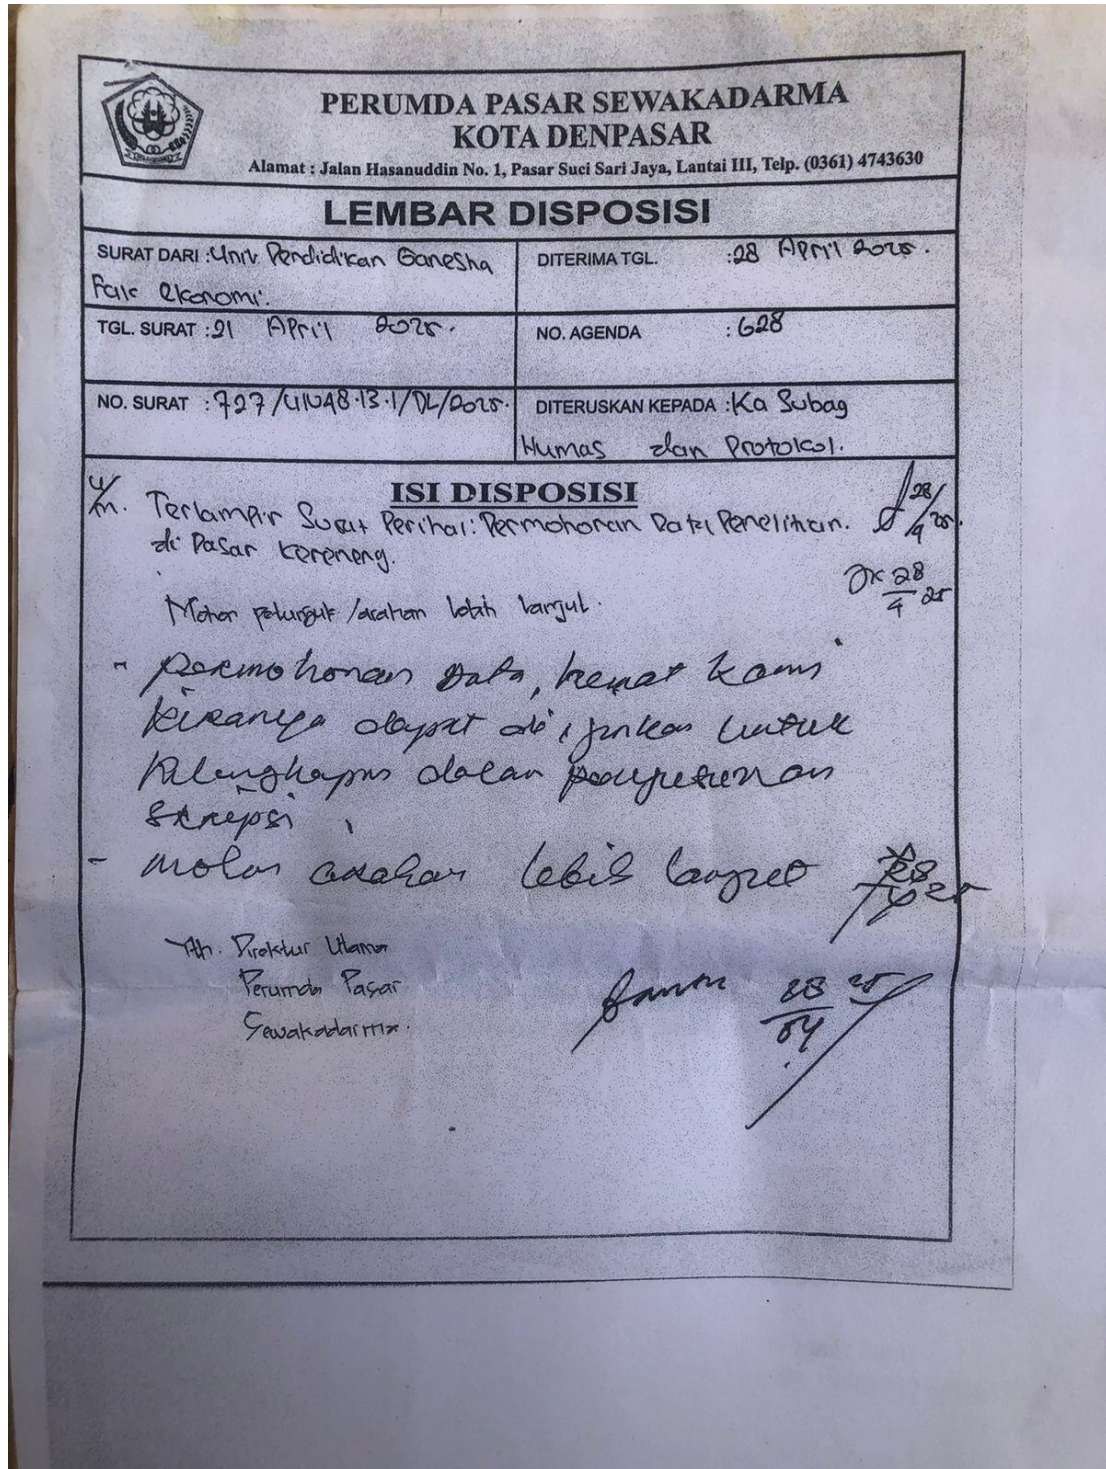 PERUMDA PASAR SEWAKADARMA
KOTA DENPASAR
Alamat : Jalan Hasanuddin No. 1, Pasar Suci Sari Jaya, Lantai III, Telp. (0361) 4743630
LEMBAR DISPOSISI
SURAT DARI : Univ Pendidikan Ganesha
Fak ekonomi.
DITERIMA TGL. : 28 April 2025.
TGL. SURAT : 21 April 2025.
NO. AGENDA : 628
NO. SURAT : 727/UN48.13.1/DL/2025.
DITERUSKAN KEPADA : Ka Subag
Humas dan Protokol.
ISI DISPOSISI
Terlampir Surat Perihal: Permohonan Data Penelitian.
di Pasar Kereneng.
28/4 25.
28/4 25
Mohon petunjuk /arahan lebih lanjut.
- permohonan data, hemat kami
kiranya dapat di ijinkan untuk
kelengkapan dalam penyusunan
skripsi
- mohon arahan lebih lanjut
28/4 25
Yth. Direktur Utama
Perumda Pasar
Sewakadarma.
28/04 25